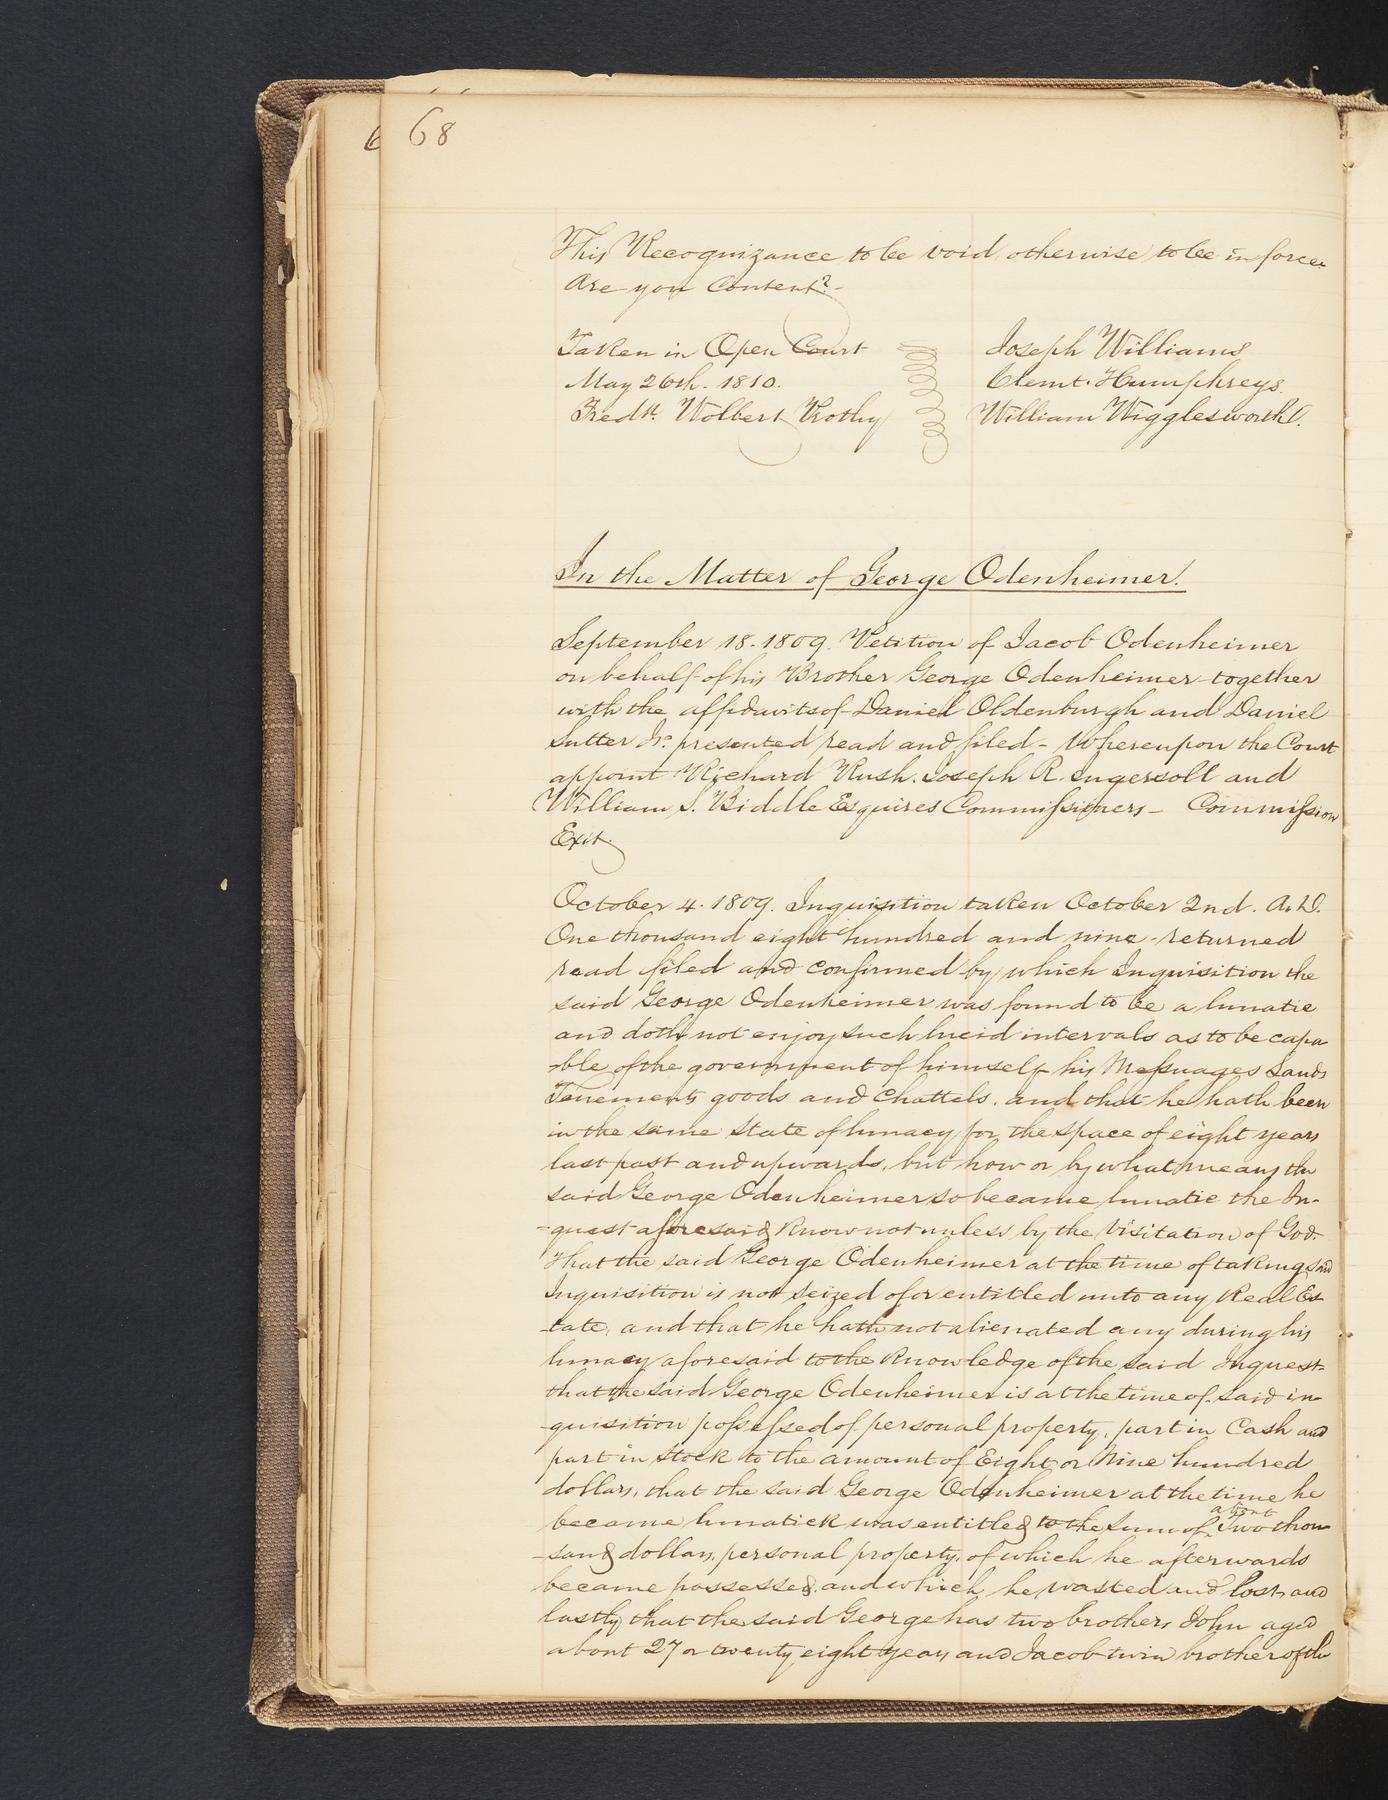 68
This Recognizance to be void, otherwise to be in force.
Are you Content?
Taken in Open Court
May 26th. 1810.
Fredk. Wolbert Prothy
Joseph Williams
Clemt. Humphreys
William Wigglesworth
In the Matter of George Odenheimer.
September 18. 1809. Petition of Jacob Odenheimer
on behalf of his Brother George Odenheimer together
with the affidavits of Daniel Oldenburgh and Daniel
Sutter Jr. presented read and filed - Whereupon the Court
appoint Richard Rush. Joseph R. Ingersoll and
William S. Biddle Esquires Commissioners - Commission
Exit.
October 4. 1809. Inquisition taken October 2nd. A.D.
One thousand eight hundred and nine - returned
read filed and confirmed by which Inquisition the
said George Odenheimer was found to be a lunatic
and doth not enjoy such lucid intervals as to be capa
-ble of the government of himself his Messuages Lands
Tenements goods and Chattels. and that he hath been
in the same state of lunacy for the space of eight years
last past and upwards, but how or by what means the
said George Odenheimer so became lunatic the In-
-quest aforesaid know not unless by the Visitation of God-
That the said George Odenheimer at the time of taking said
Inquisition is not seized of or entitled unto any Real Es
-tate, and that he hath not alienated any during his
lunacy aforesaid to the knowledge of the said Inquest-
that the said George Odenheimer is at the time of said in
-quisition possessed of personal property, part in Cash and
part in Stock to the amount of Eight or Nine hundred
dollars, that the said George Odenheimer at the time he
became lunatick was entitled to the sum of about Two thou
-sand dollars, personal property, of which he afterwards
became possessed, and which he wasted and lost, and
lastly that the said George has two brothers John aged
about 27 or twenty eight years and Jacob twin brother of the